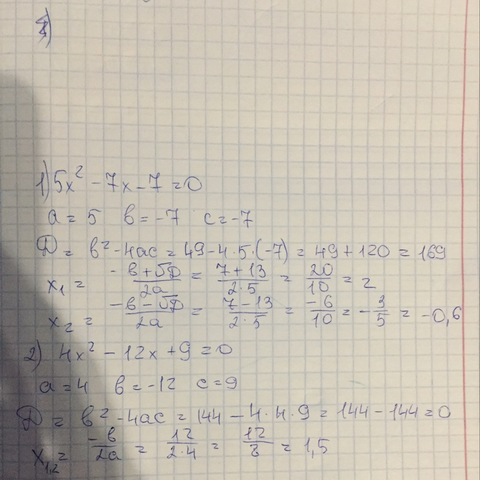 1) 5x² - 7x - 7 = 0
a = 5 в = -7 c = -7
D = в² - 4ac = 49 - 4·5·(-7) = 49 + 120 = 169
x₁ = (-в + √D)/2a = (7 + 13)/(2·5) = 20/10 = 2
x₂ = (-в - √D)/2a = (7 - 13)/(2·5) = -6/10 = -3/5 = -0,6
2) 4x² - 12x + 9 = 0
a = 4 в = -12 c = 9
D = в² - 4ac = 144 - 4·4·9 = 144 - 144 = 0
x₁,₂ = -в/2a = 12/(2·4) = 12/8 = 1,5